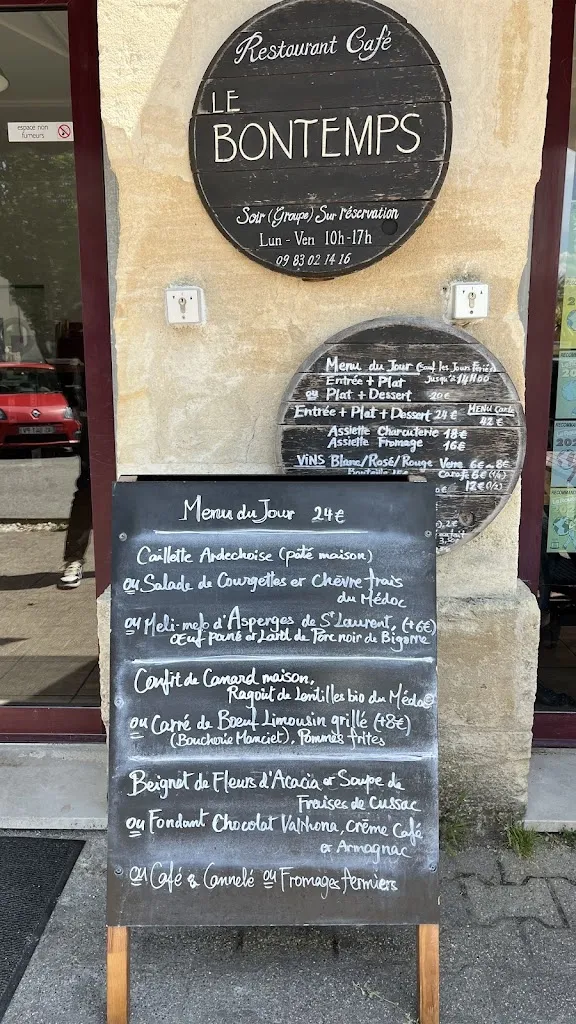 espace non
fumeurs
Restaurant Café
LE
BONTEMPS
Soir (Groupe) Sur réservation
Lun - Ven 10h-17h
09 83 02 14 16
Menu du Jour (sauf les Jours Férié)
Entrée + Plat Jusqu'à 14H00
ou Plat + Dessert 20€
Entrée + Plat + Dessert 24€ MENU Carte
42€
Assiette Charcuterie 18€
Assiette Fromage 16€
VINS Blanc/Rosé/Rouge Verre 6€ à 8€
Bouteille Carafe 6€ (1/4)
12€ (1/2)
Menu du Jour 24€
Caillette Ardechoise (paté maison)
ou Salade de Courgettes et Chèvre frais
du Médoc
ou Meli-melo d'Asperges de St Laurent, (+6€)
Oeuf pané et Lard de Porc noir de Bigorre
Confit de Canard maison,
Ragout de Lentilles bio du Médoc
ou Carré de Boeuf Limousin grillé (+8€)
(Boucherie Manciet), Pommes frites
Beignet de Fleurs d'Acacia et Soupe de
Fraises de Cussac
ou Fondant Chocolat Valrhona, Crème Café
et Armagnac
ou Café & Cannelé ou Fromages fermiers